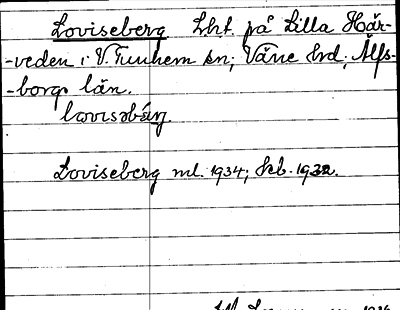 Loviseberg Lht. på Lilla Här-
-veden i V. Tunhem sn; Väne hd; Älfs-
-borgs län.
Loviseberg ml. 1934; kb. 1932.